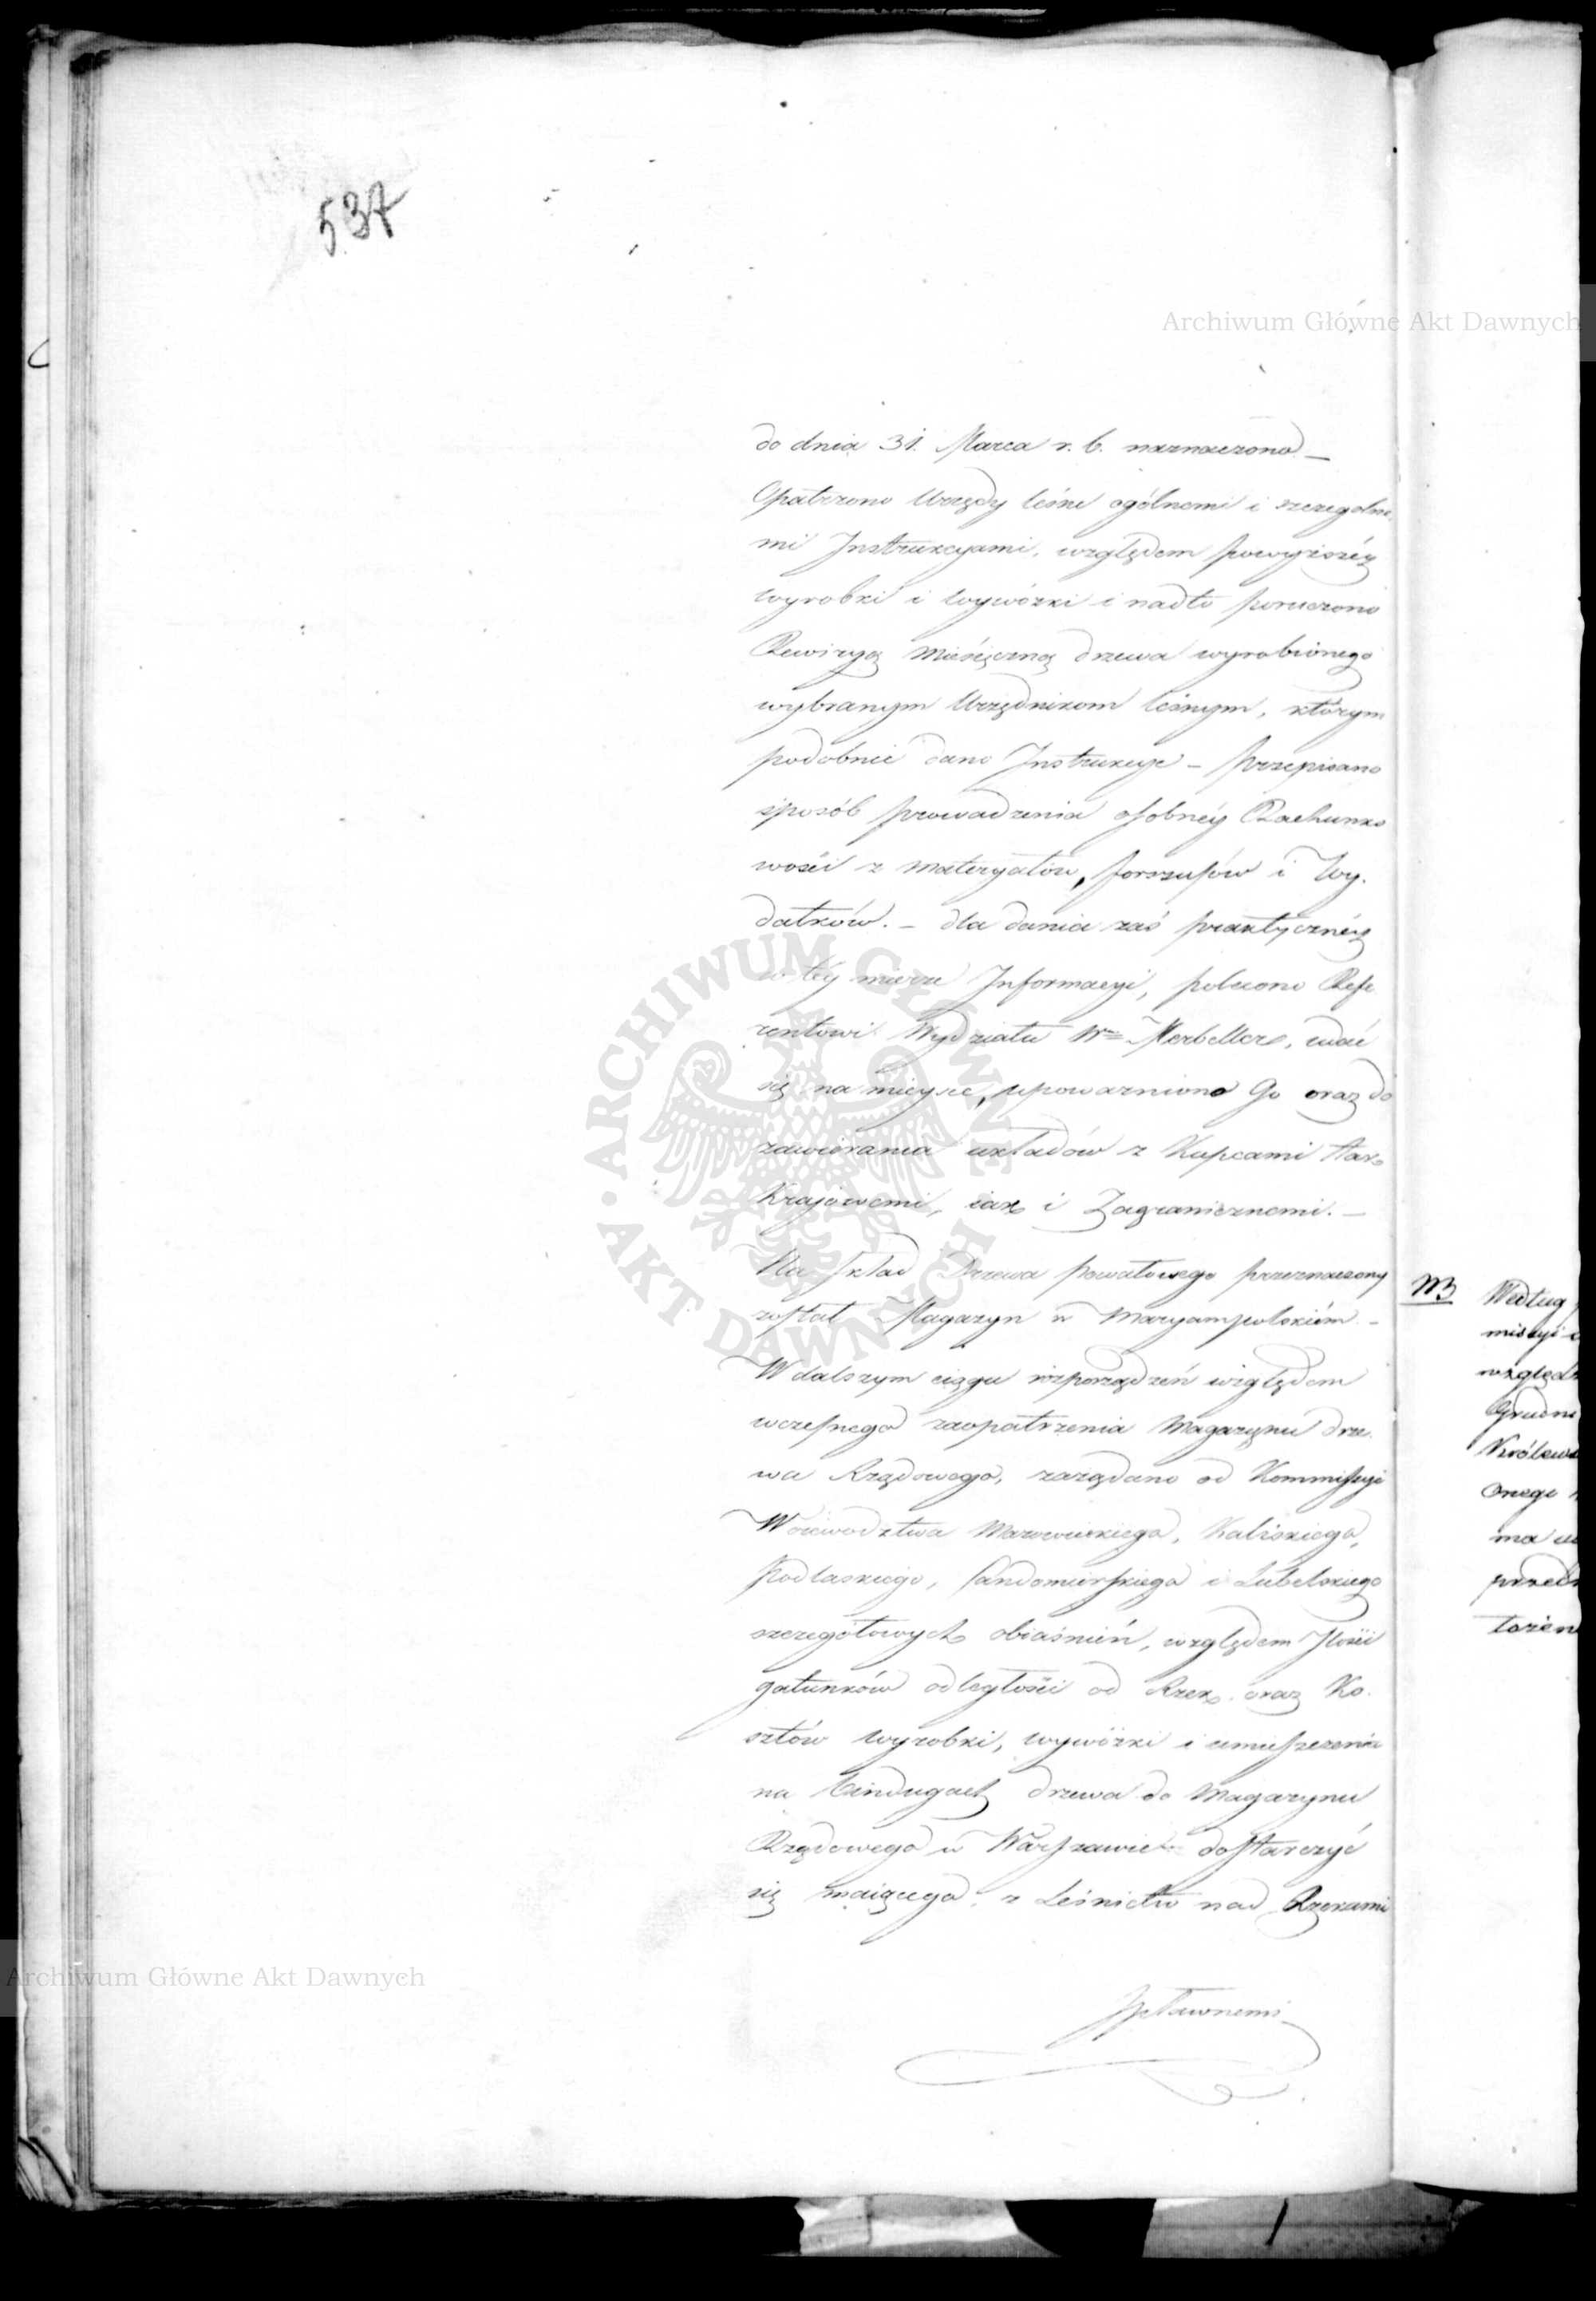 537
Archiwum Główne Akt Dawnych
do dnia 31. Marca r. b. naznaczono —
Opatrzono Urzędy leśne ogólnemi i szczegolne
mi Instrukcyami, względem powyższéy
wyrobki i wywózki i nadto poruczono
Rewizyą Mieśięczną drzewa wyrobionego
wybranym Urzędnikom leśnym, którym
podobnie dano Instrukcye — przepisano
sposób prowadzenia osobnéy Rachunko
wości z materyałów, forszusów i Wy-
datków. — dla dania zaś praktycznéy
w téy mierze Informacyi, polecono Refe
rentowi Wydziału Wmu Merbeller, udać
się na mieysce, upoważniono Go oraz do
zawierania układów z Kupcami tak
Krajowemi, iak i Zagranicznemi. —
Na skład Drzewa powałowego przeznaczony
został Magazyn w Maryampolskiém. —
W dalszym ciągu rozporządzeń względem
wczesnego zaopatrzenia Magazynu drze-
wa Rządowego, zażądano od Kommissyi
Woiewodztwa Mazowieckiego, Kaliskiego,
Podlaskiego, Sandomierskiego i Lubelskiego
szczegółowych obiaśnień, względem Ilości
gatunków odległości od Rzek oraz Ko-
sztów wyrobki, wywózki i umieszczenia
na bindugach drzewa do Magazynu
Rządowego w Warszawie dostarczyć
się maiącego, z Leśnictw nad Rzekami
spławnemi
NB
Według
missyi
względ
Grudni
Królews
Onego
ma
przed
łożen
Archiwum Główne Akt Dawnych
ARCHIWUM GŁÓWNE
AKT DAWNYCH